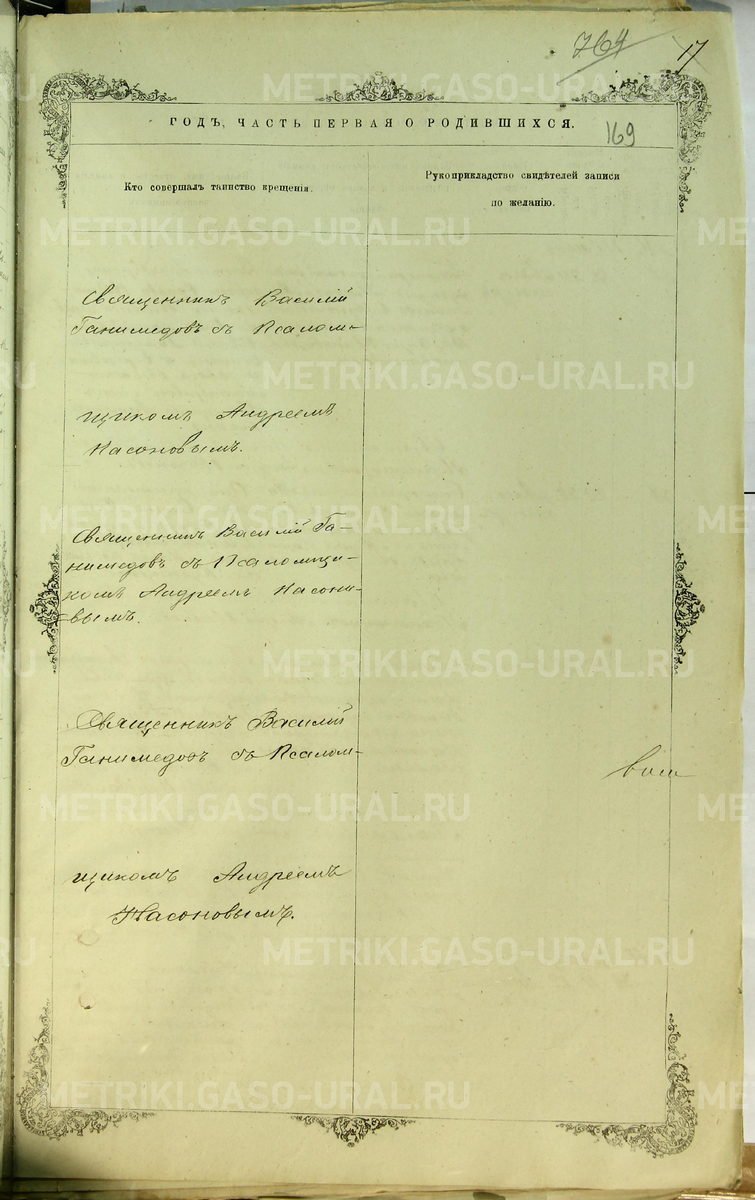 764 17
ГОДЪ, ЧАСТЬ ПЕРВАЯ О РОДИВШИХСЯ.
169
Кто совершалъ таинство крещенія.
Рукоприкладство свидѣтелей записи
по желанію.
Священникъ Василій
Ганимедовъ съ Псалом-
щикомъ Андреемъ
Насоновымъ.
Священникъ Василій Га-
нимедовъ съ Псаломщи-
комъ Андреемъ Насоно-
вымъ.
Священникъ Василій
Ганимедовъ съ Псалом-
щикомъ Андреемъ
Насоновымъ.
METRIKI.GASO-URAL.RU